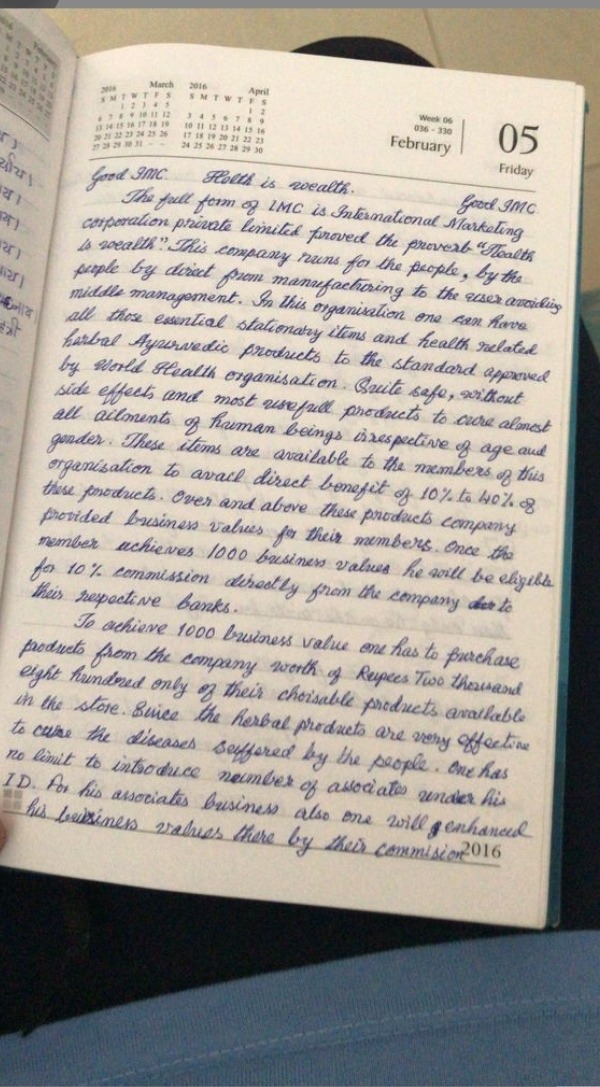 2016 March 2016 April
S M T W T F S S M T W T F S
1 2 3 4 5 1 2
6 7 8 9 10 11 12 3 4 5 6 7 8 9
13 14 15 16 17 18 19 10 11 12 13 14 15 16
20 21 22 23 24 25 26 17 18 19 20 21 22 23
27 28 29 30 31 - - 24 25 26 27 28 29 30
Week 06
036 - 330
February
05
Friday
Good IMC Helth is wealth. Good IMC
The full form of IMC is International Marketing
corporation private limited proved the proverb "Health
is wealth". This company runs for the people, by the
people by direct from manufacturing to the user avoiding
middle management. In this organisation one can have
all those essential stationary items and health related
herbal Ayurvedic products to the standard approved
by World Health organisation. Quite safe, without
side effects and most usefull products to cure almost
all ailments of human beings irrespective of age and
gender. These items are available to the members of this
organisation to avail direct benefit of 10% to 40% of
these products. Over and above these products company
provided business values for their members. Once the
member achieves 1000 business values he will be eligible
for 10% commission directly from the company to
their respective banks.
To achieve 1000 business value one has to purchase
products from the company worth of Rupees Two thousand
eight hundred only of their choisable products available
in the store. Since the herbal products are very effective
to cure the diseases suffered by the people. One has
no limit to introduce number of associates under his
I D. For his associates business also one will enhanced
his business values there by their commision
2016